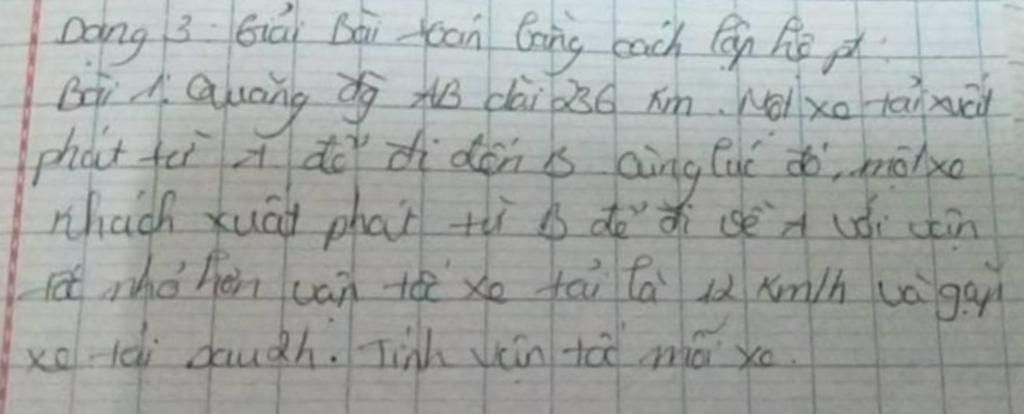 Dạng 3: Giải Bài toán bằng cách lập hệ pt.
Bài 1: Quãng đg AB dài 236 km. Một xe tải xuất
phát từ A để đi đến B cùng lúc đó, một xe
khách xuất phát từ B để đi về A với vận
tốc nhỏ hơn vận tốc xe tải là 12 km/h và gặp
xe tải sau 2h. Tính vận tốc mỗi xe.